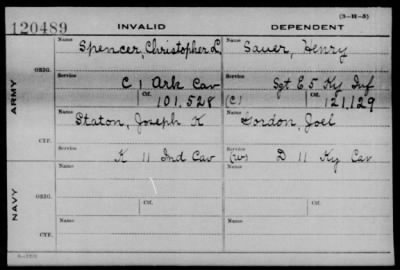 (3-11-3)
120489 INVALID DEPENDENT
ARMY ORIG. Name Spencer, Christopher L. Name Sauer, Henry
Service C 1 Ark Cav Service Sgt E 5 Ky Inf
Ctf. 101,528 (C) Ctf. 121,129
CTF. Name Staton, Joseph K Name Gordon, Joel
Service K 11 Ind Cav Service (W) D 11 Ky Cav
NAVY ORIG. Name Name
Service Ctf. Service Ctf.
CTF. Name Name